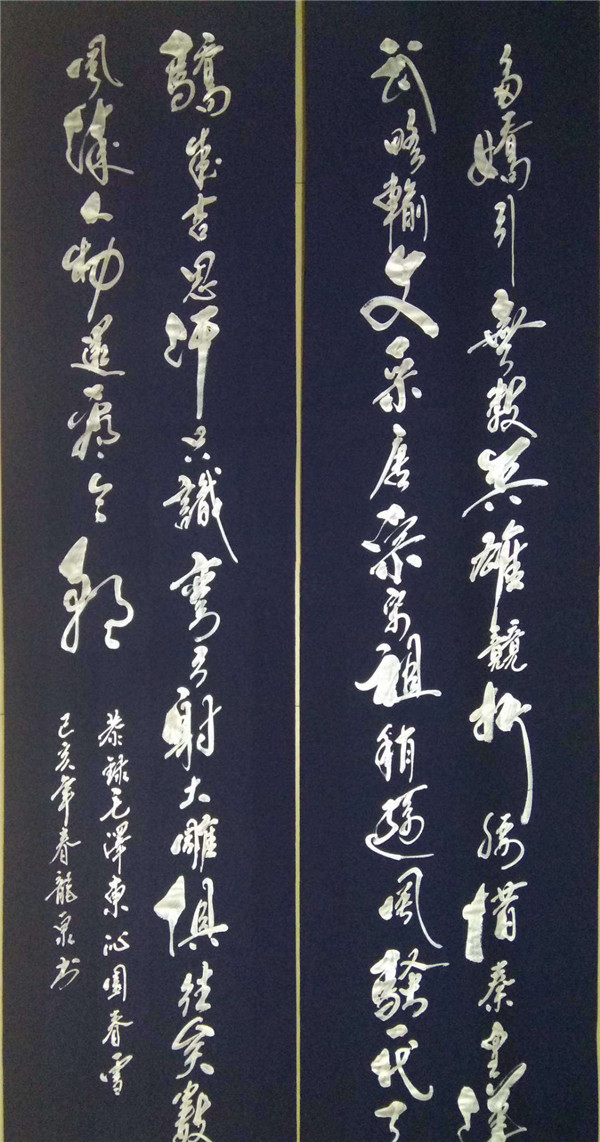 多嬌引無數英雄競折腰惜秦皇漢
武略輸文采唐宗宋祖稍遜風騷一代天
驕成吉思汗只識彎弓射大雕俱往矣數
風流人物還看今朝
恭録毛澤東沁園春雪
己亥年春龍泉书